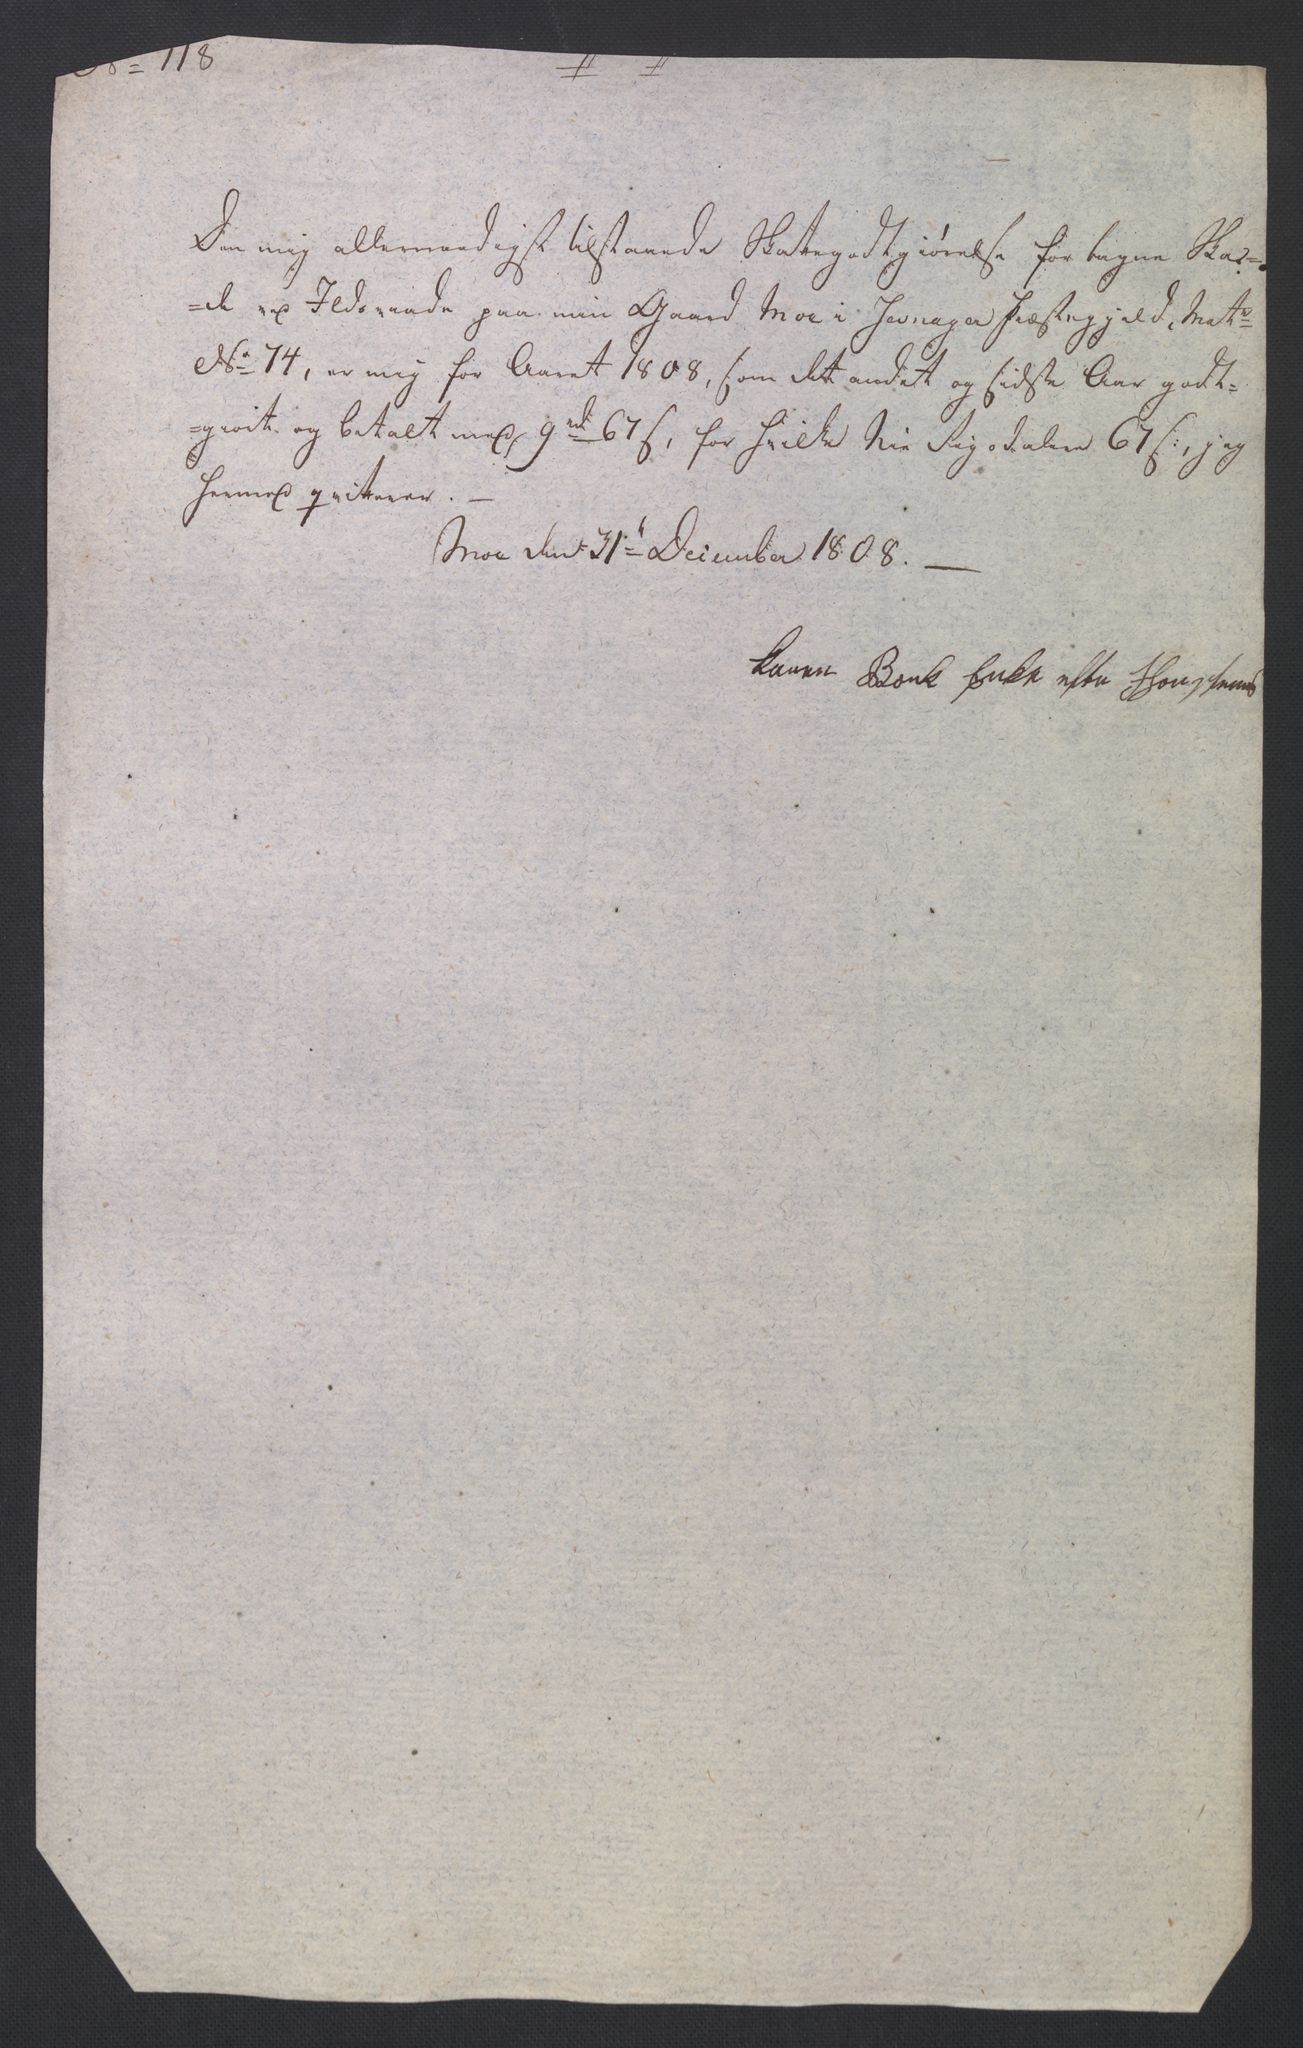 No= 118
Den mig allernaadigst tilstaaede Skattegodtgiørelse for tagne Ska=
=de ved Ildsvaade paa min Gaard Moe i Jevnager Præstegjeld, Matr
No 74, er mig for Aaret 1808, som det andet og sidste Aar godt=
=giort og betalt med 9 rd 67 s, for hvilke Nie Rigsdaler 67 s:, jeg
hermed qviterer. —
Moe den 31te December 1808. —
Karen Enke efter